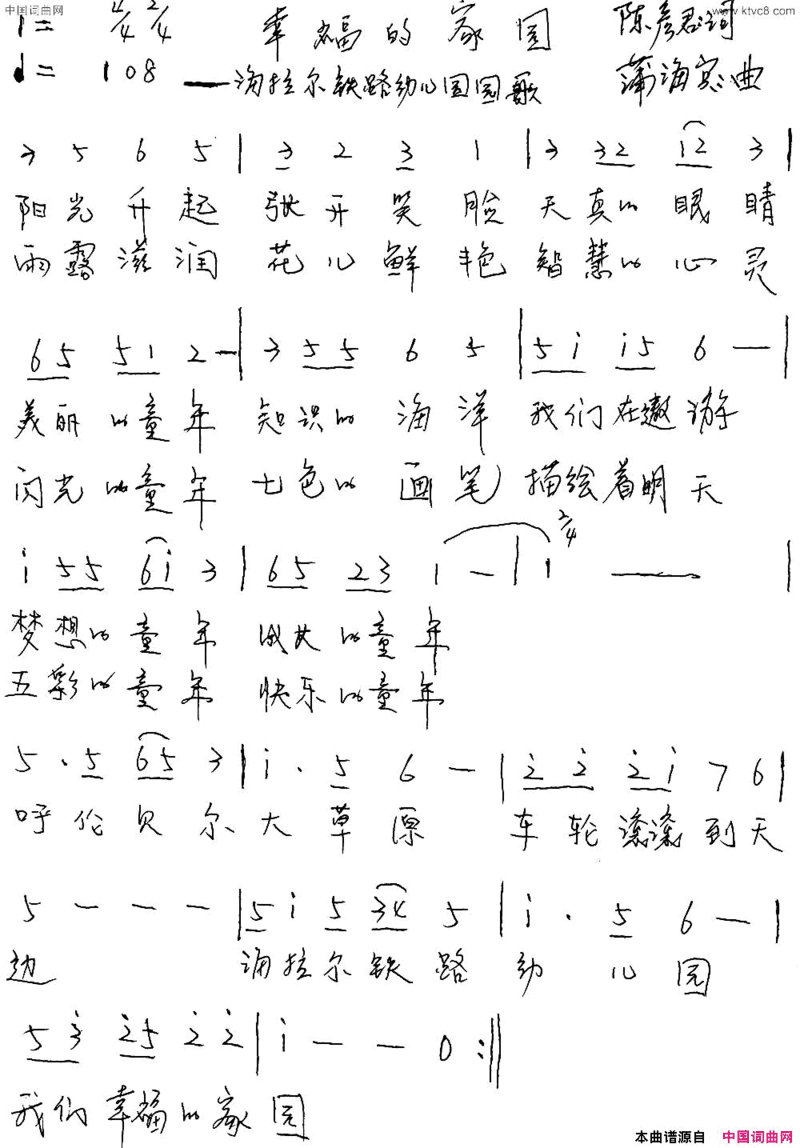 中国词曲网
www.ktvc8.com
1= 4/4 2/4 幸福的家园 陈彦君词
♩= 108 ——海拉尔铁路幼儿园园歌 蒲海宽曲
3 5 6 5 | 3 2 3 1 | 3 32 12 3 |
阳光升起 张开笑脸 天真的眼睛
雨露滋润 花儿鲜艳 智慧的心灵
65 51 2 - | 3 55 6 5 | 5i i5 6 — |
美丽的童年 知识的海洋 我们在遨游
闪光的童年 七色的画笔 描绘着明天
i 55 6i 3 | 65 23 1 - | 2/4 1 — |
梦想的童年 成长的童年
五彩的童年 快乐的童年
5 · 5 65 3 | i · 5 6 - | 2 2 2i 7 6 |
呼伦贝尔大草原 车轮滚滚到天
5 - - - | 5 i 5 34 5 | i · 5 6 - |
边 海拉尔铁路幼儿园
5 3 25 2 2 | i - - 0 :||
我们幸福的家园
本曲谱源自 中国词曲网